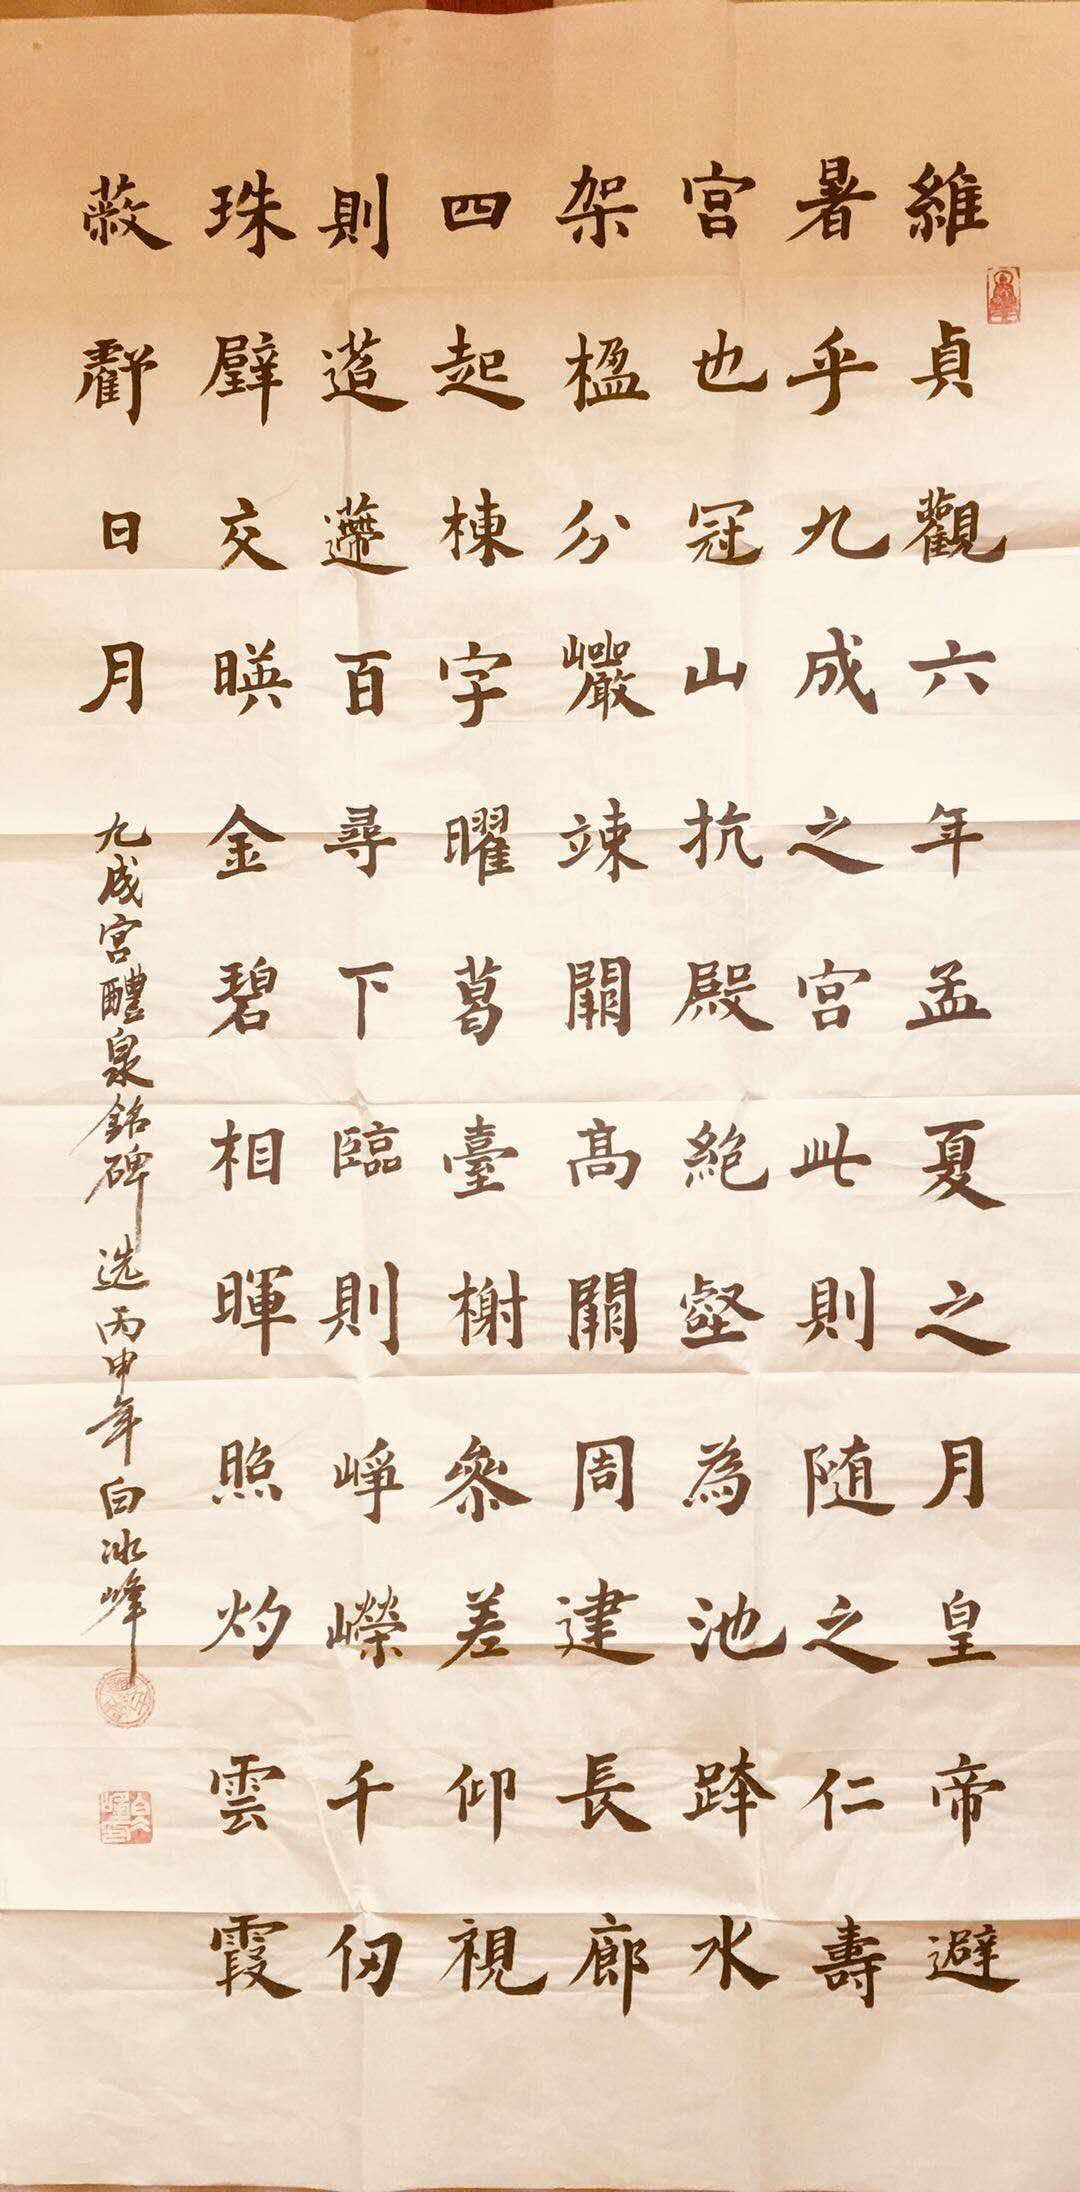 維貞觀六年孟夏之月皇帝避
暑乎九成之宮此則随之仁壽
宮也冠山抗殿絶壑為池跨水
架楹分巖竦闕高閣周建長廊
四起棟字曜葛臺榭參差仰視
則迢遰百尋下臨則崢嶸千仞
珠璧交暎金碧相暉照灼雲霞
蔽虧日月
九成宮醴泉銘碑选丙申年白冰峰